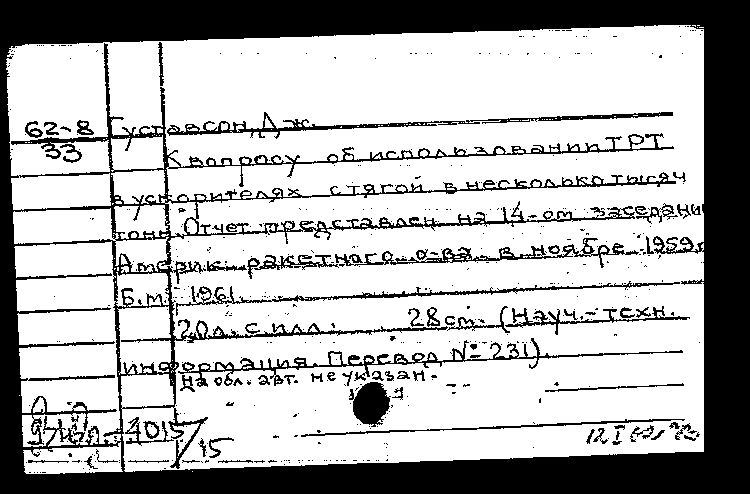 62-8
33
Густавсон, Дж.
К вопросу об использовании ТРТ
в ускорителях с тягой в несколько тысяч
тонн. Отчет представлен на 14-ом заседании
Америк. ракетного о-ва в ноябре 1959 г.
Б.м. 1961.
20 л. с илл. 28 cm. (Науч.-техн.
информация. Перевод № 231).
На обл. авт. не указан.
4015/15
12 I 62